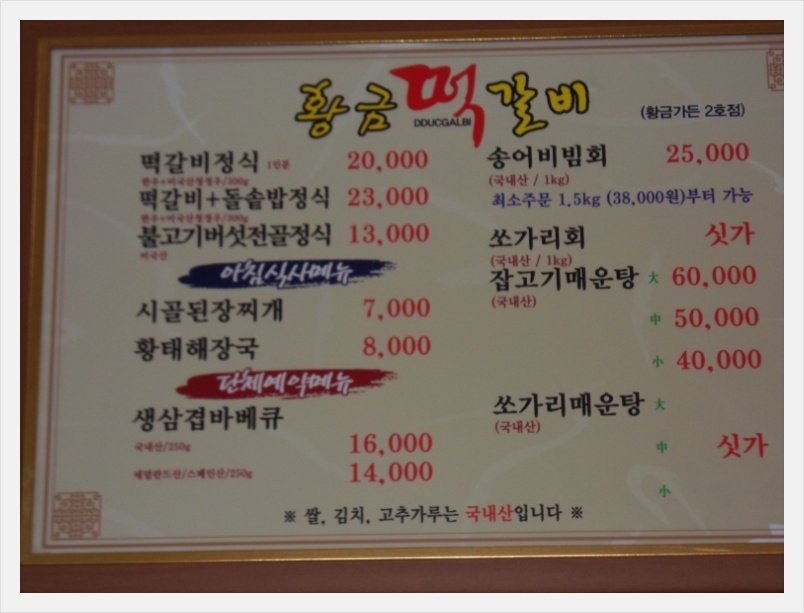 황금떡갈비
DDUCGALBI
(황금가든 2호점)
떡갈비정식 1인분 20,000
한우+미국산청정우/300g
떡갈비+돌솥밥정식 23,000
한우+미국산청정우/300g
불고기버섯전골정식 13,000
미국산
아침식사메뉴
시골된장찌개 7,000
황태해장국 8,000
단체예약메뉴
생삼겹바베큐
국내산/250g 16,000
네덜란드산/스페인산/250g 14,000
송어비빔회 25,000
(국내산 / 1kg)
최소주문 1.5kg (38,000원)부터 가능
쏘가리회 싯가
(국내산 / 1kg)
잡고기매운탕 大 60,000
(국내산)
中 50,000
小 40,000
쏘가리매운탕 大
(국내산)
中 싯가
小
※ 쌀, 김치, 고추가루는 국내산입니다 ※